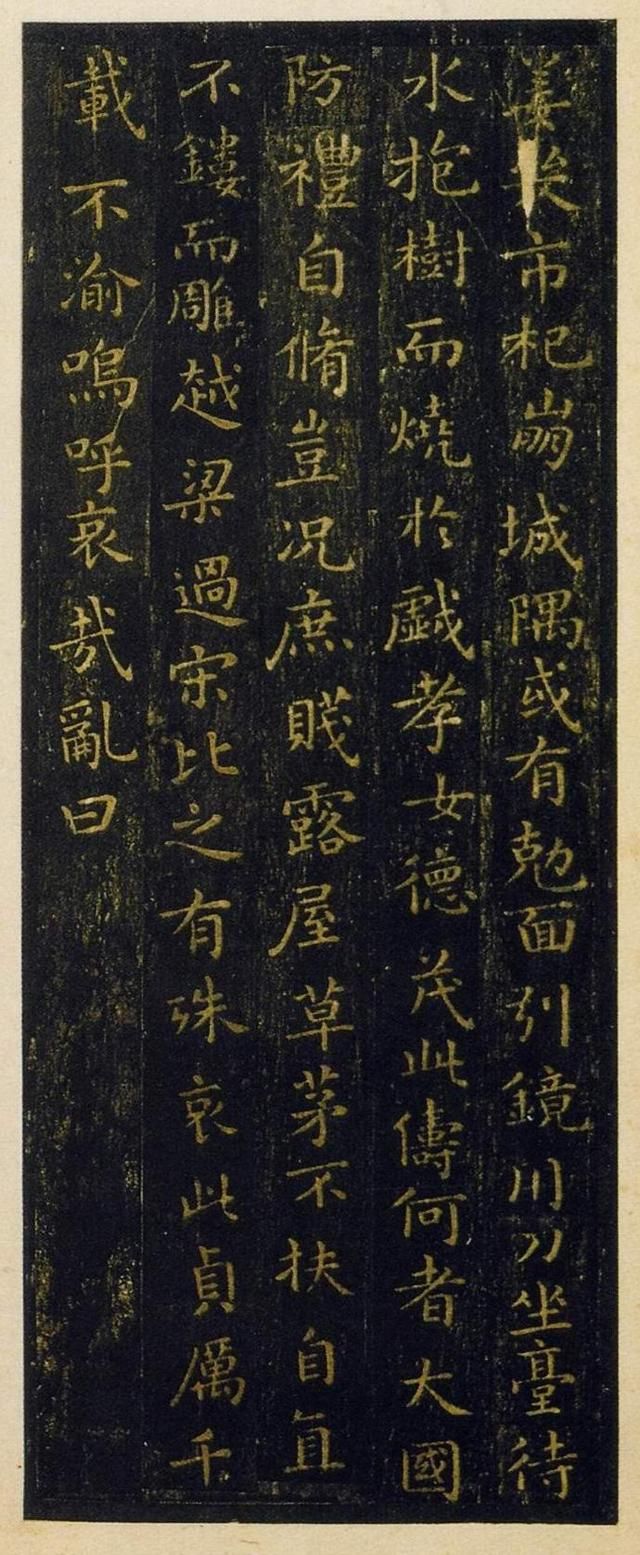 姜哭市杞崩城隅或有尅面引鏡川刀坐臺待
水抱樹而燒於戯孝女德茂此儔何者大國
防禮自脩豈况庶賤露屋草茅不扶自直
不鏤而雕越梁過宋比之有殊哀此貞厲千
載不渝嗚呼哀哉亂曰